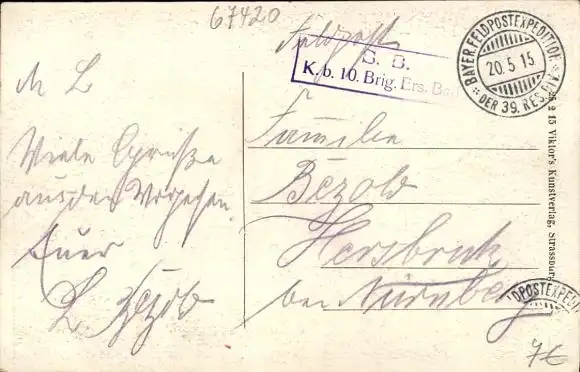 67420
Feldpost
S. B.
K. b. 10. Brig. Ers. Bat
BAYER. FELDPOSTEXPEDITION
20.5.15
DER 39. RES. DIV.
M L
Viele Grüße
aus den Vogesen.
Euer
L Bezold
Familie
Bezold
Hersbruck
bei Nürnberg
2 15 Viktor's Kunstverlag, Strassburg
DPOSTEXPEDI
7€